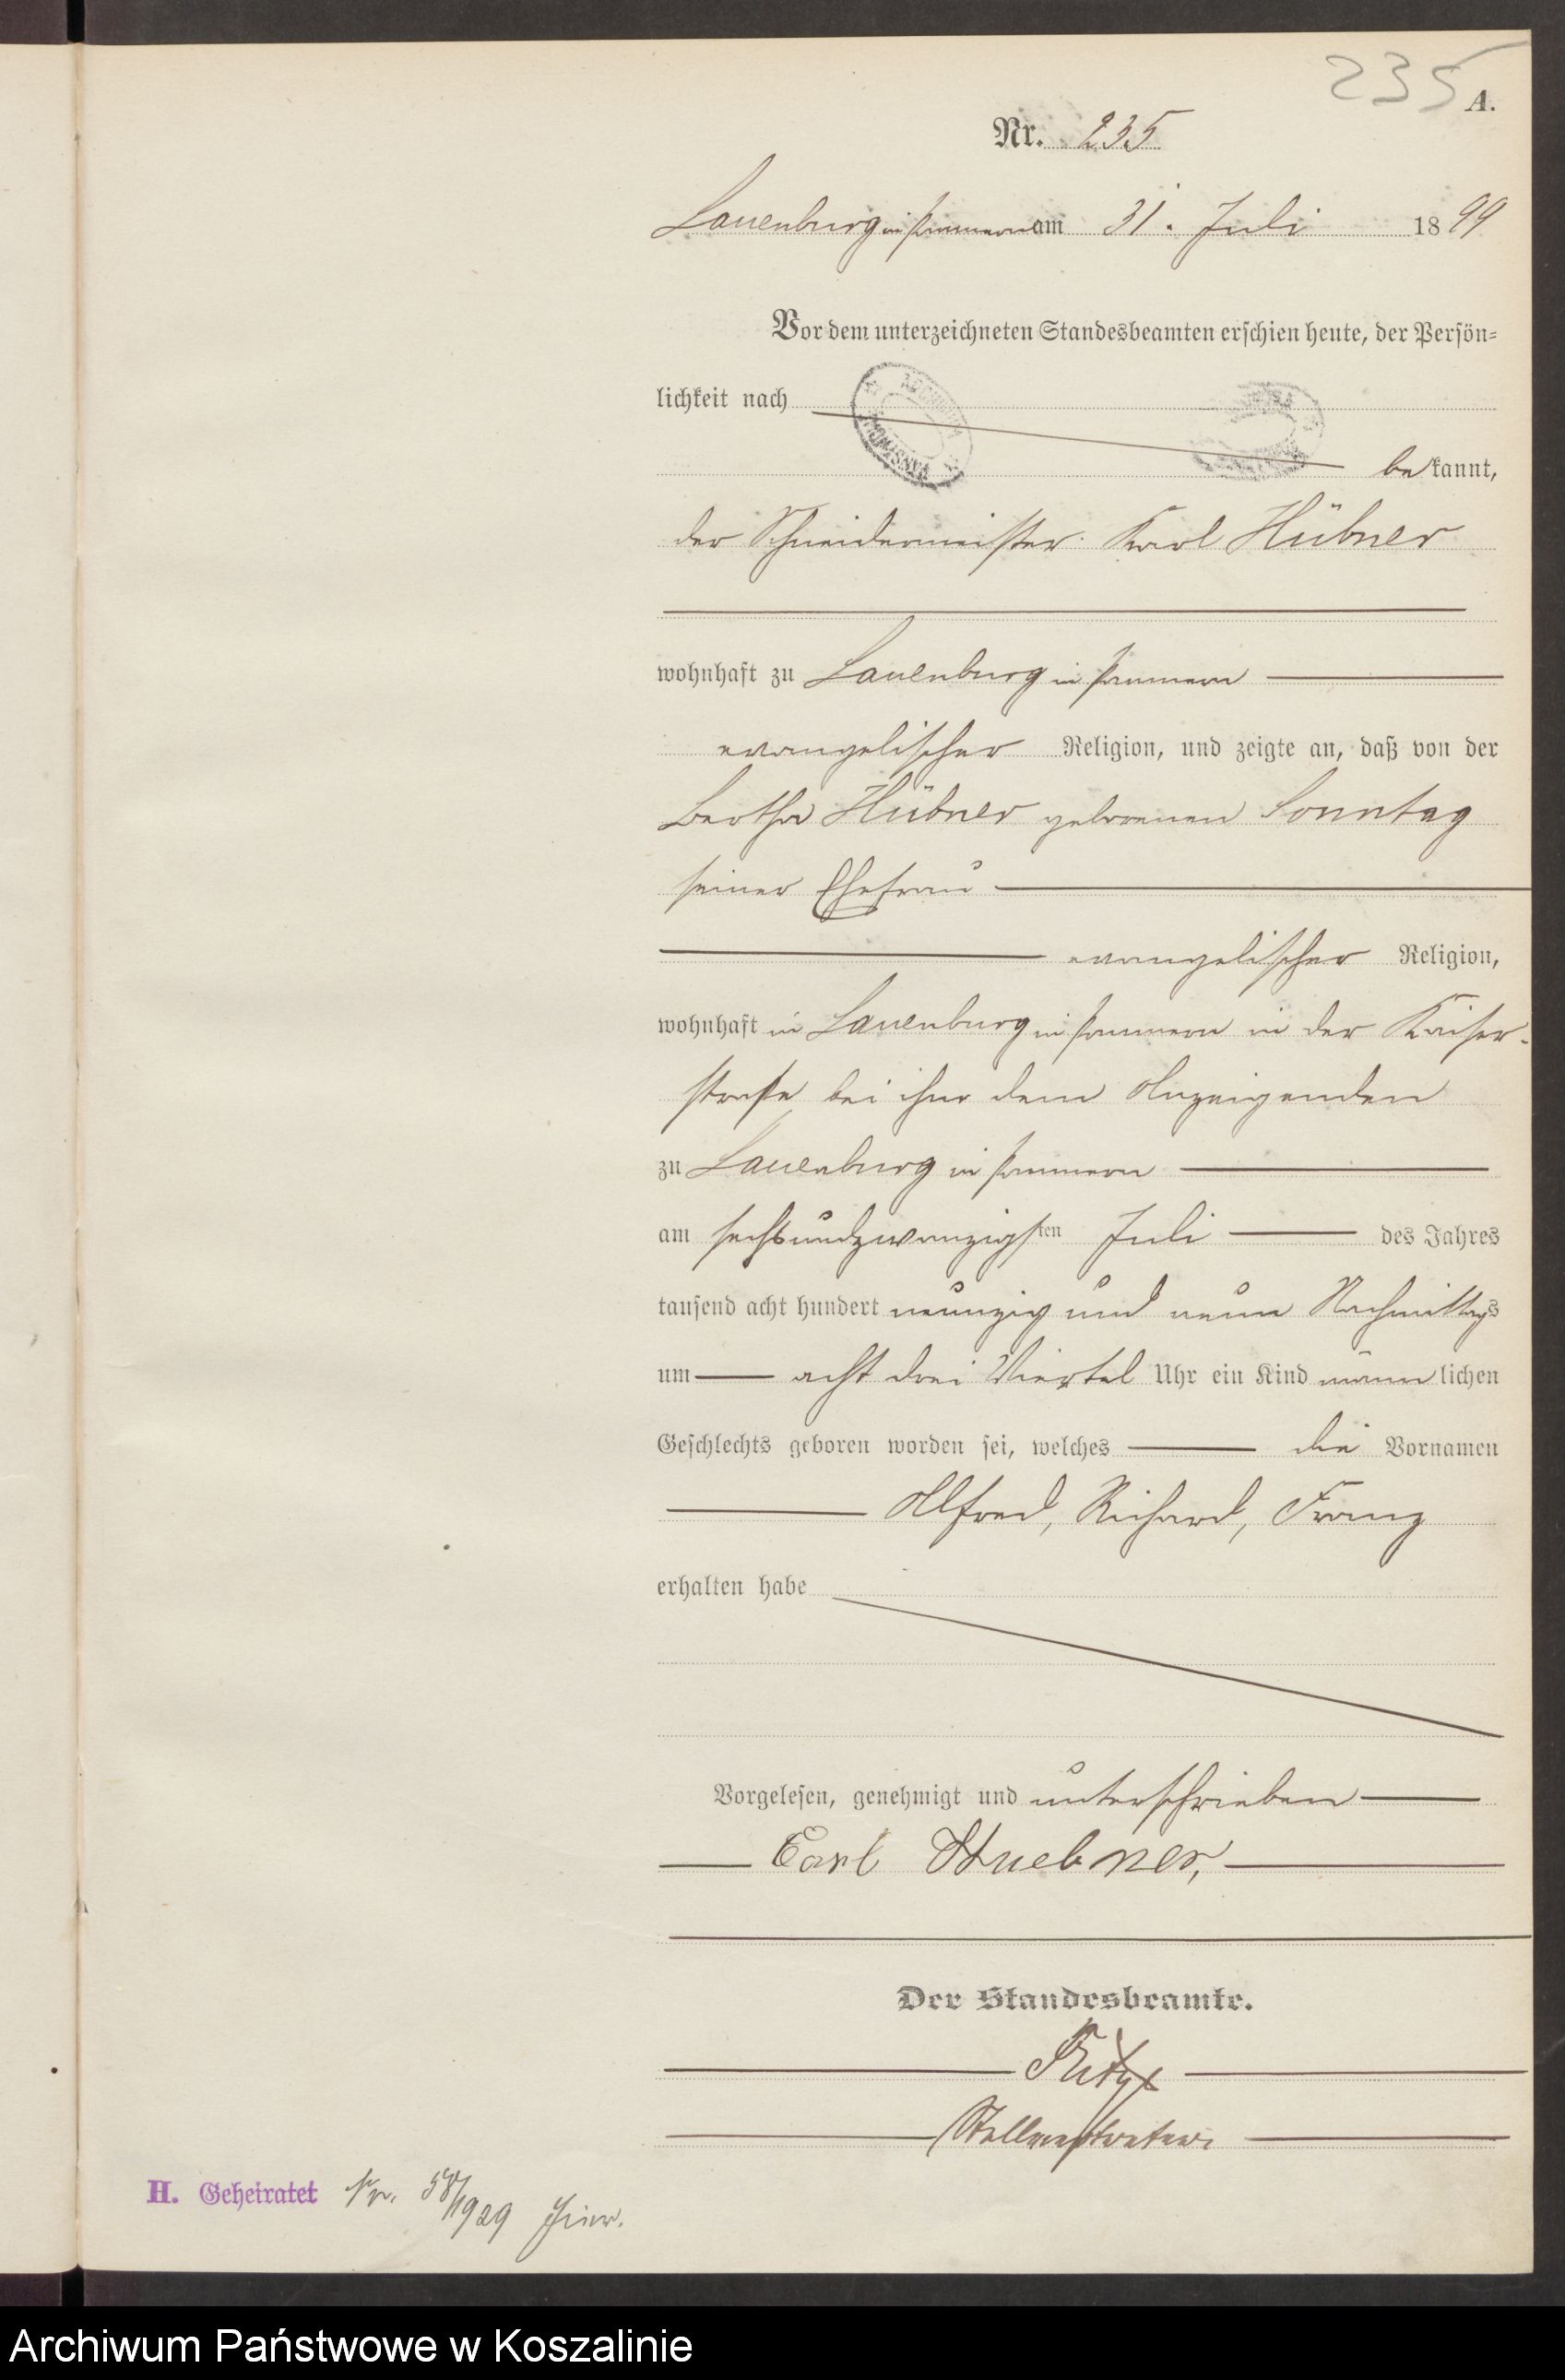 235
A.
Nr. 235
Lauenburg in Pommern am 31. Juli 1899
Vor dem unterzeichneten Standesbeamten erschien heute, der Persön-
lichkeit nach
bekannt,
der Schneidermeister Karl Hübner
wohnhaft zu Lauenburg in Pommern
evangelischer Religion, und zeigte an, daß von der
Bertha Hübner geborenen Sonntag
seiner Ehefrau
evangelischer Religion,
wohnhaft in Lauenburg in Pommern in der Kaiser-
straße bei ihm dem Anzeigenden
zu Lauenburg in Pommern
am sechsundzwanzigsten Juli des Jahres
tausend acht hundert neunzig und neun Nachmittags
um acht drei Viertel Uhr ein Kind männlichen
Geschlechts geboren worden sei, welches die Vornamen
Alfred, Richard, Franz
erhalten habe
Vorgelesen, genehmigt und unterschrieben
Carl Huebner,
Der Standesbeamte.
Stellvertreter
H. Geheiratet Nr. 58/1929 hier.
Archiwum Państwowe w Koszalinie